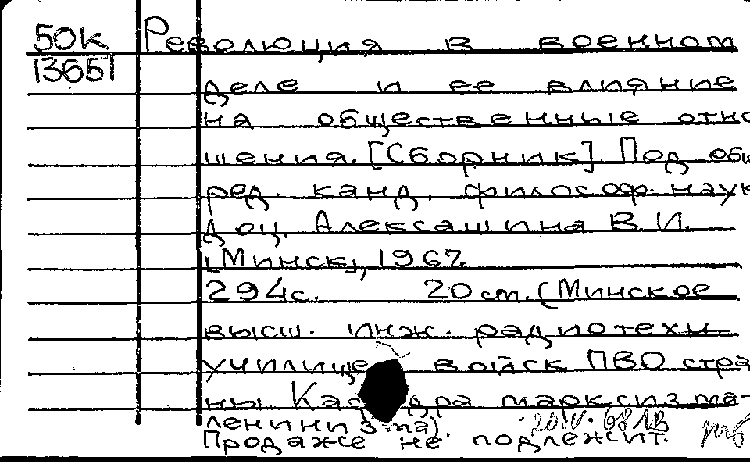 50к Революция в военном
13651
деле и ее влияние
на общественные отно
шения. [Сборник] Под общ
ред. канд. философ. наук
доц. Алексашина В.И.
[Минск], 1967.
294с. 20 см. (Минское
высш. инж. радиотехн.
училище войск ПВО стра
ны Кафедра марксизма-
ленинизма).
Продаже не подлежит.